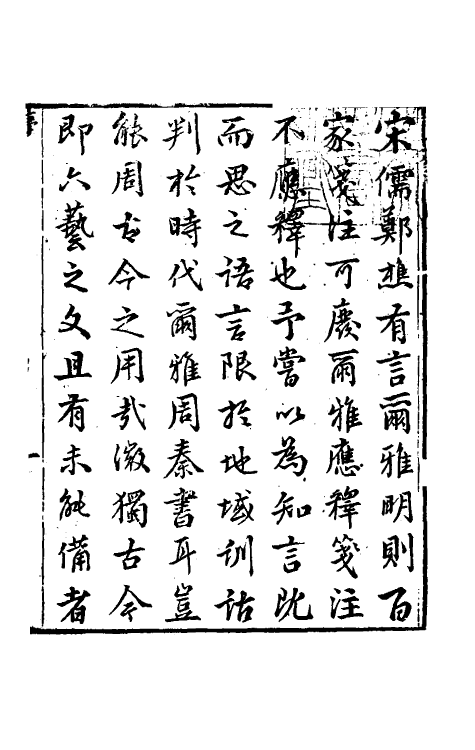 宋儒鄭樵有言爾雅明則百
家箋注可廢爾雅應釋箋注
不應釋也予嘗以為知言既
而思之語言限於地域訓詁
判於時代爾雅周秦書耳豈
能周古今之用哉微獨古今
即六藝之文且有未能備者